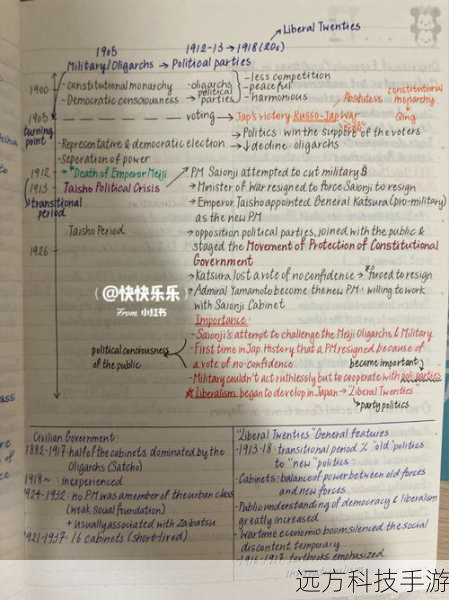 → Liberal Twenties
1905 1912-13 → 1918 (20s)
Military/Oligarchs → Political parties
1900
- Constitutional monarchy
- Democratic consciousness
oligarchs
political
parties
- less competition
- peaceful
- harmonious
Absolutism
constitutional
monarchy
1905
turning
point
voting → Jap's victory Russo-Jap War
Qing
→ Politics win the support of the voters
- Representative & democratic election → ↓ decline: oligarchs
- Seperation of power
1912 → *Death of Emperor Meiji
1913 Taisho Political Crisis
transitional
period
→ PM Saionji attempted to cut military B
→ Minister of War resigned to force Saionji to resign
→ Emperor Taisho appointed General Katsura (pro-military)
as the new PM
Taisho Period
→ opposition political parties, joined with the public &
staged the Movement of Protection of Constitutional
Government
1926
→ Katsura lost a vote of no confidence → *forced to resign
→ Admiral Yamamoto become the new PM: willing to work
with Saionji Cabinet
(@快快乐乐)
From 小红书
Importance:
- Saionji's attempt to challenge the Meiji Oligarchs & Military
political conciousness
of the public
- First time in Jap. History that a PM resigned because of
a vote of no-confidence
become important
- Military couldn't act ruthlessly but to cooperate with pol. parties
★ Liberalism began to develop in Japan → Liberal Twenties
→ party politics
Civilian Government:
1882-1917: half of the cabinets dominated by the
Oligarchs (Satcho)
1918~ : inexperienced
1924-1932: no PM was a member of the urban class
(weak social foundation)
+ usually associated with Zaibatsu
1921-1937: 16 cabinets (short-lived)
"Liberal Twenties" General features
- 1913-18: transitional period % "old" politics
to "new" politics
- Cabinets: balance of power between old forces
and new forces
- Public understanding of democracy & liberalism
greatly increased
- Wartime economic boom silenced the social
discontent temporary
- 1916-1917: textbooks emphasized
远方科技手游